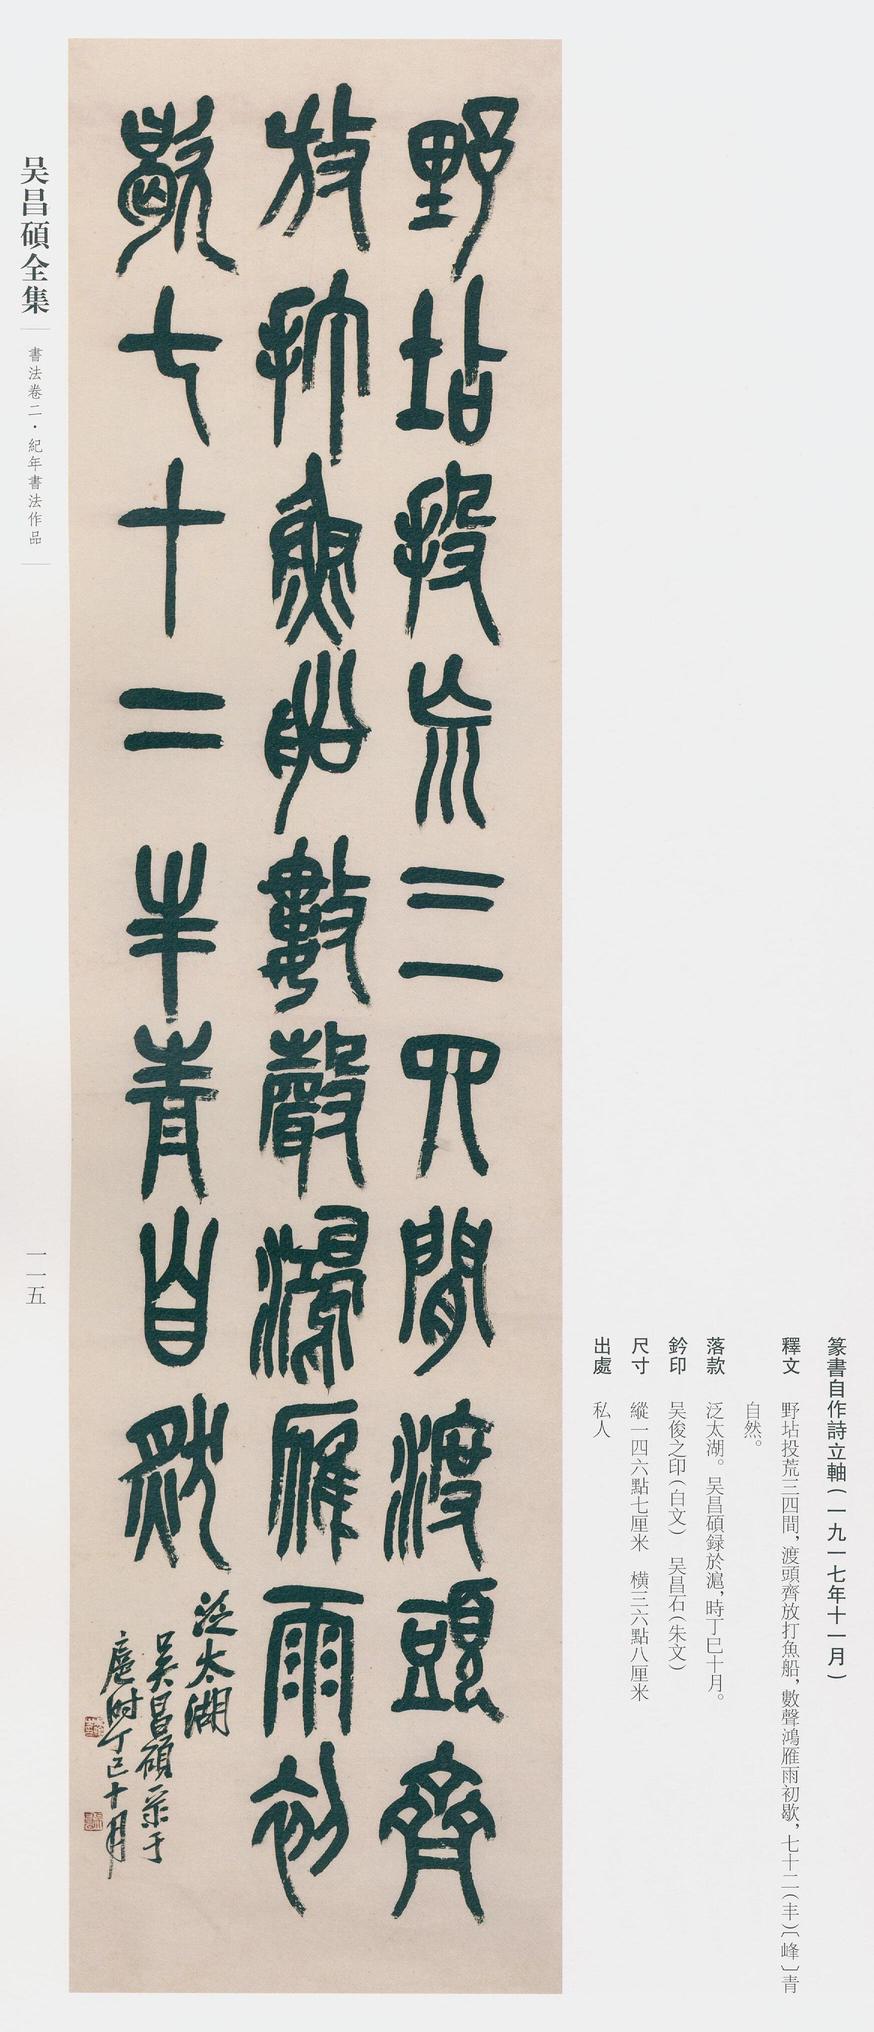 篆書自作詩立軸（一九一七年十一月）
釋文 野坫投荒三四間，渡頭齊放打魚船，數聲鴻雁雨初歇，七十二（丰）〔峰〕青
自然。
落款 泛太湖。吴昌碩録於滬，時丁巳十月。
鈐印 吴俊之印（白文） 吴昌石（朱文）
尺寸 縱一四六點七厘米 横三六點八厘米
出處 私人
野坫投巟三四間渡頭齊
放打魚船數聲鴻雁雨初
歇七十二丰青自然
泛太湖
吴昌碩录于
滬时丁巳十月
吴昌碩全集
書法卷二·紀年書法作品
一一五